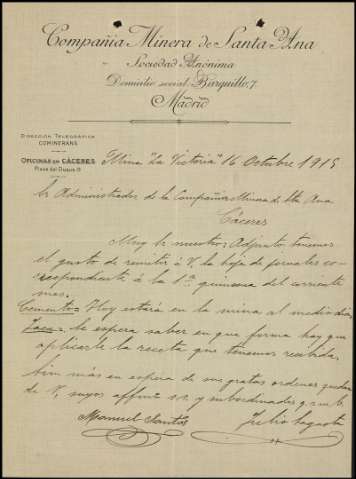 Compañia Minera de Santa Ana
Sociedad Anónima
Domicilio social: Barquillo, 7.
Madrid
DIRECCIÓN TELEGRÁFICA
COMINERANS
OFICINAS EN CÁCERES
Plaza del Duque
Mina "La Victoria" 16 Octubre 1915
Sr Administrador de la Compañia Minera de Sta Ana
Cáceres
Muy Sr nuestro: Adjunto tenemos
el gusto de remitir á V. la hoja de jornales co-
rrespondiente á la 1ª quincena del corriente
mes.
Cementos Hoy estará en la mina al mediodia
se espera saber en que forma hay que
aplicarle la receta que tenemos recibida
Sin más en espera de sus gratas ordenes quedamos
de V. suyos affmos s.s. y subordinados q.s.m.b.
Manuel Santos
Julio Sagasta